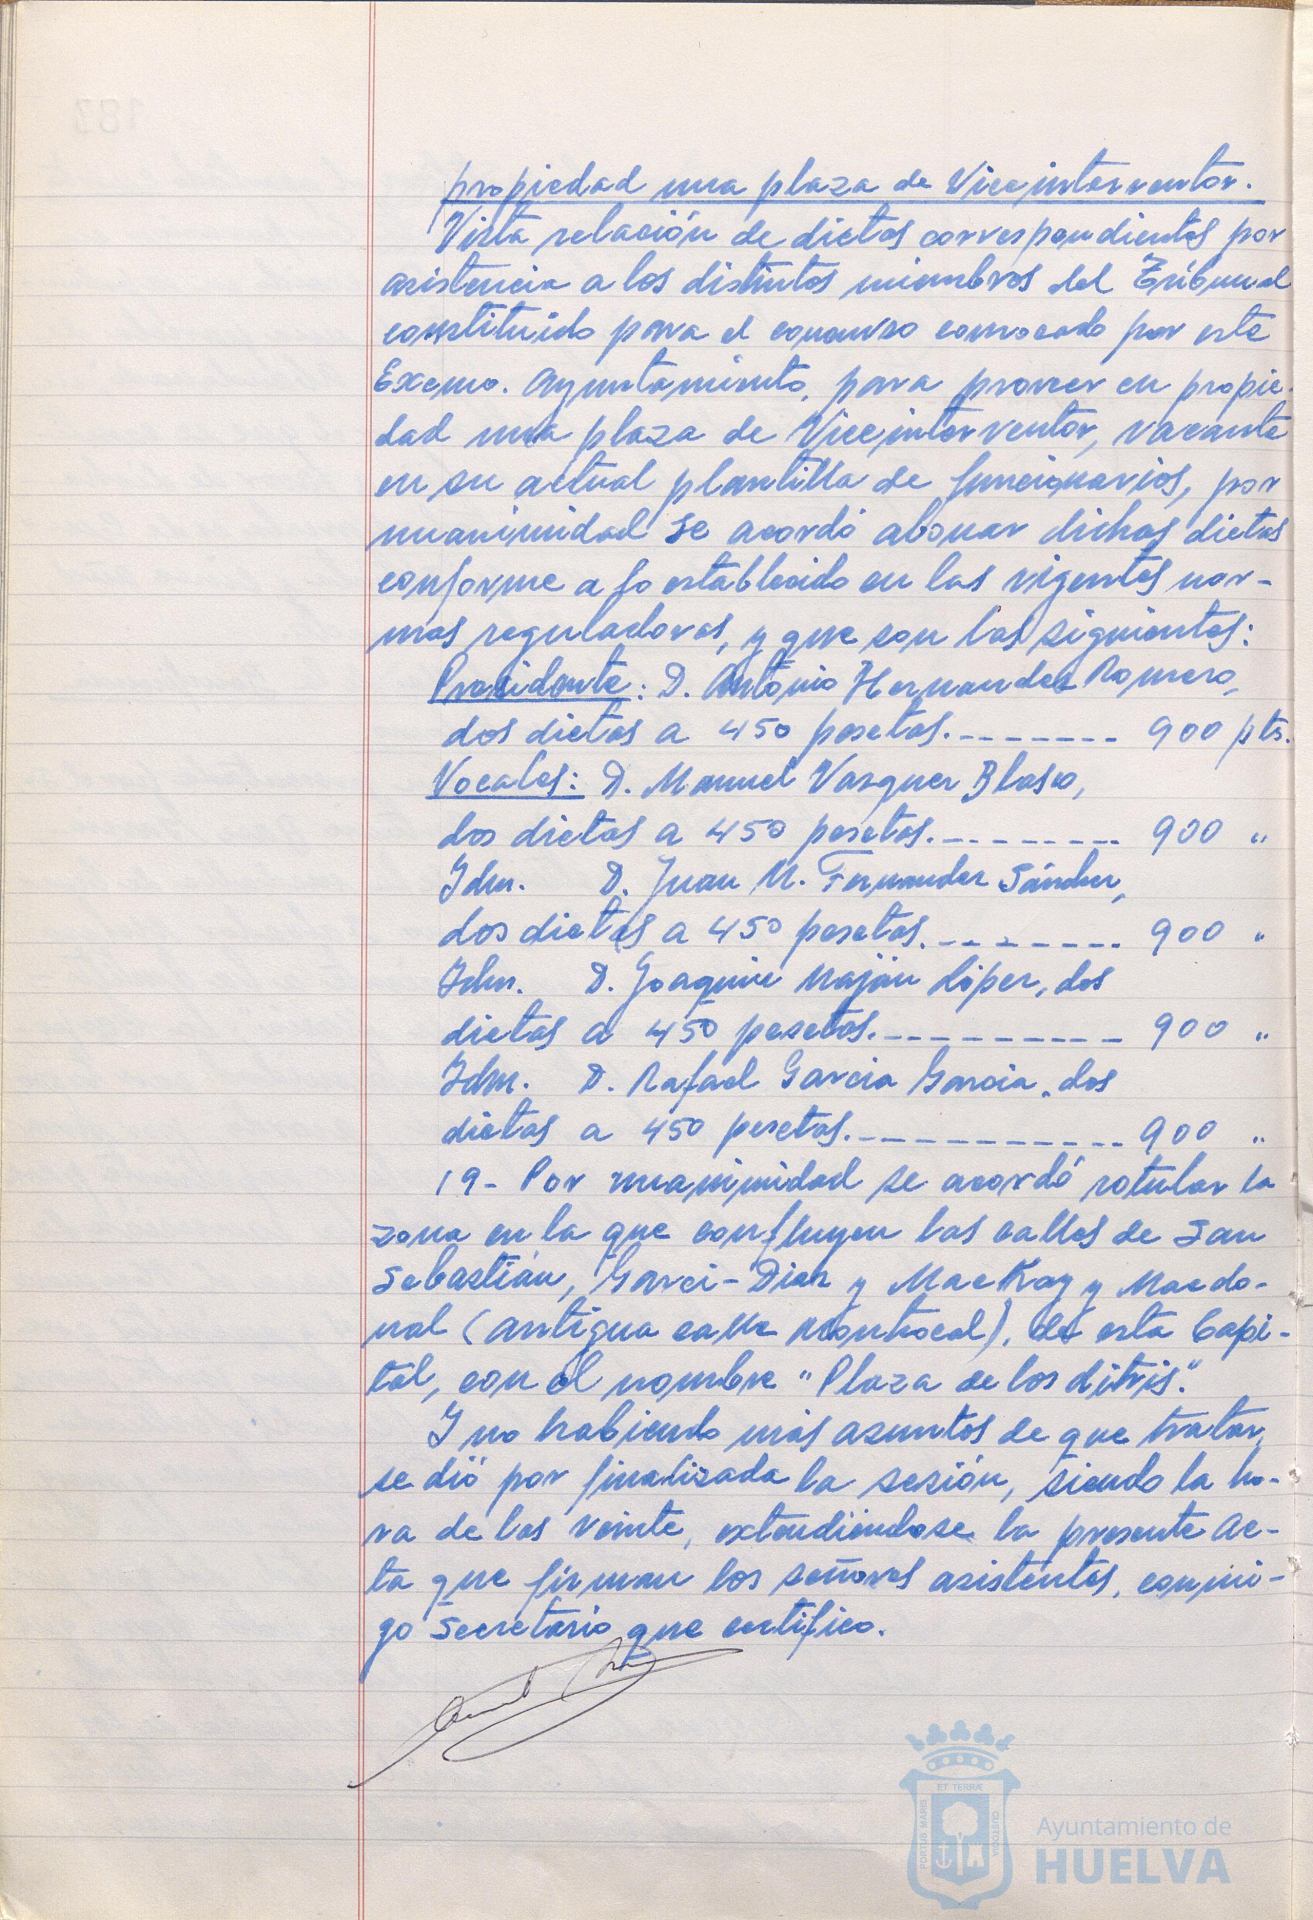 propiedad una plaza de Viceinterventor.
Vista relación de dietas correspondientes por
asistencia a los distintos miembros del Tribunal
constituido para el concurso convocado por este
Excmo. Ayuntamiento, para proveer en propie-
dad una plaza de Viceinterventor, vacante
en su actual plantilla de funcionarios, por
unanimidad se acordó abonar dichas dietas
conforme a lo establecido en las vigentes nor-
mas reguladoras, y que son las siguientes:
Presidente: D. Antonio Hernandez Romero,
dos dietas a 450 pesetas.------- 900 pts.
Vocales: D. Manuel Vazquez Blasco,
dos dietas a 450 pesetas.-------- 900 "
Idm. D. Juan M. Fernandez Sánchez,
dos dietas a 450 pesetas.-------- 900 "
Idm. D. Joaquin Naján López, dos
dietas a 450 pesetas.---------- 900 "
Idm. D. Rafael Garcia Garcia, dos
dietas a 450 pesetas.----------- 900 "
19- Por unanimidad se acordó rotular la
zona en la que confluyen las calles de San
Sebastián, Garci-Diaz y MacKay y Macdo-
nal (antigua calle Montrocal), de esta Capi-
tal, con el nombre "Plaza de los ditris".
Y no habiendo más asuntos de que tratar,
se dió por finalizada la sesión, siendo la ho-
ra de las veinte, extendiéndose la presente Ac-
ta que firman los señores asistentes, conmi-
go Secretario que certifico.
PORTUS MARIS
ET TERRÆ
CUSTODIA
Ayuntamiento de
HUELVA